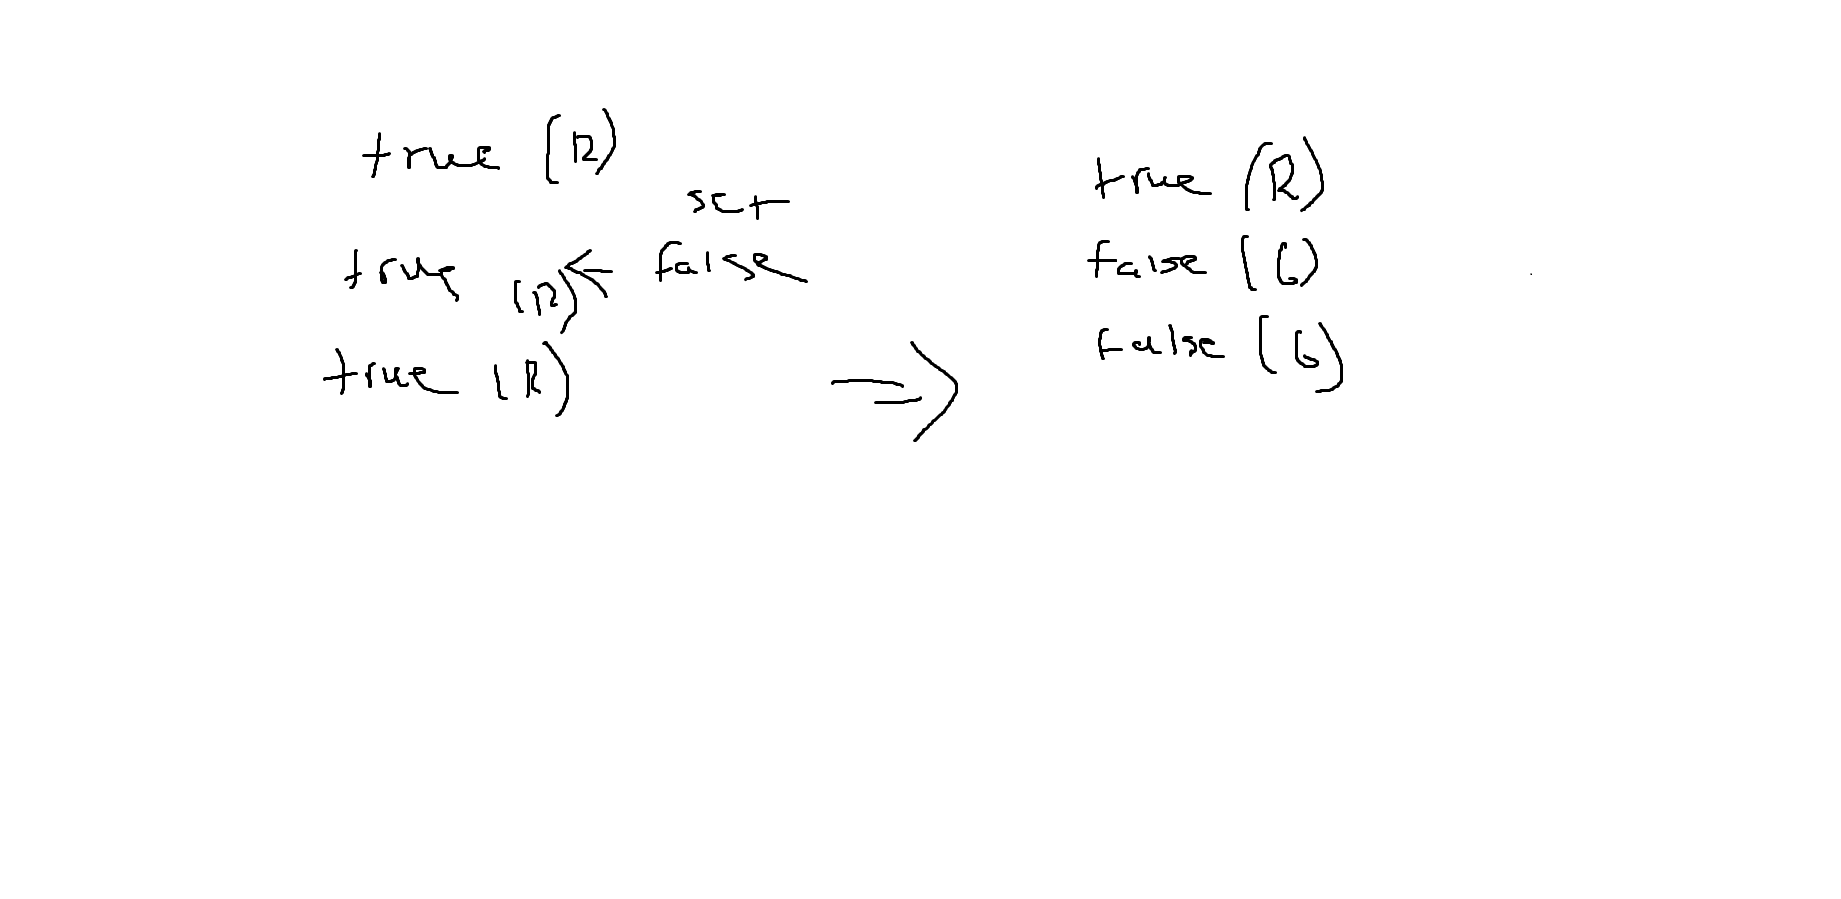 true (R)
set
true (R) ← false
true (R)
⇒
true (R)
false (G)
false (G)